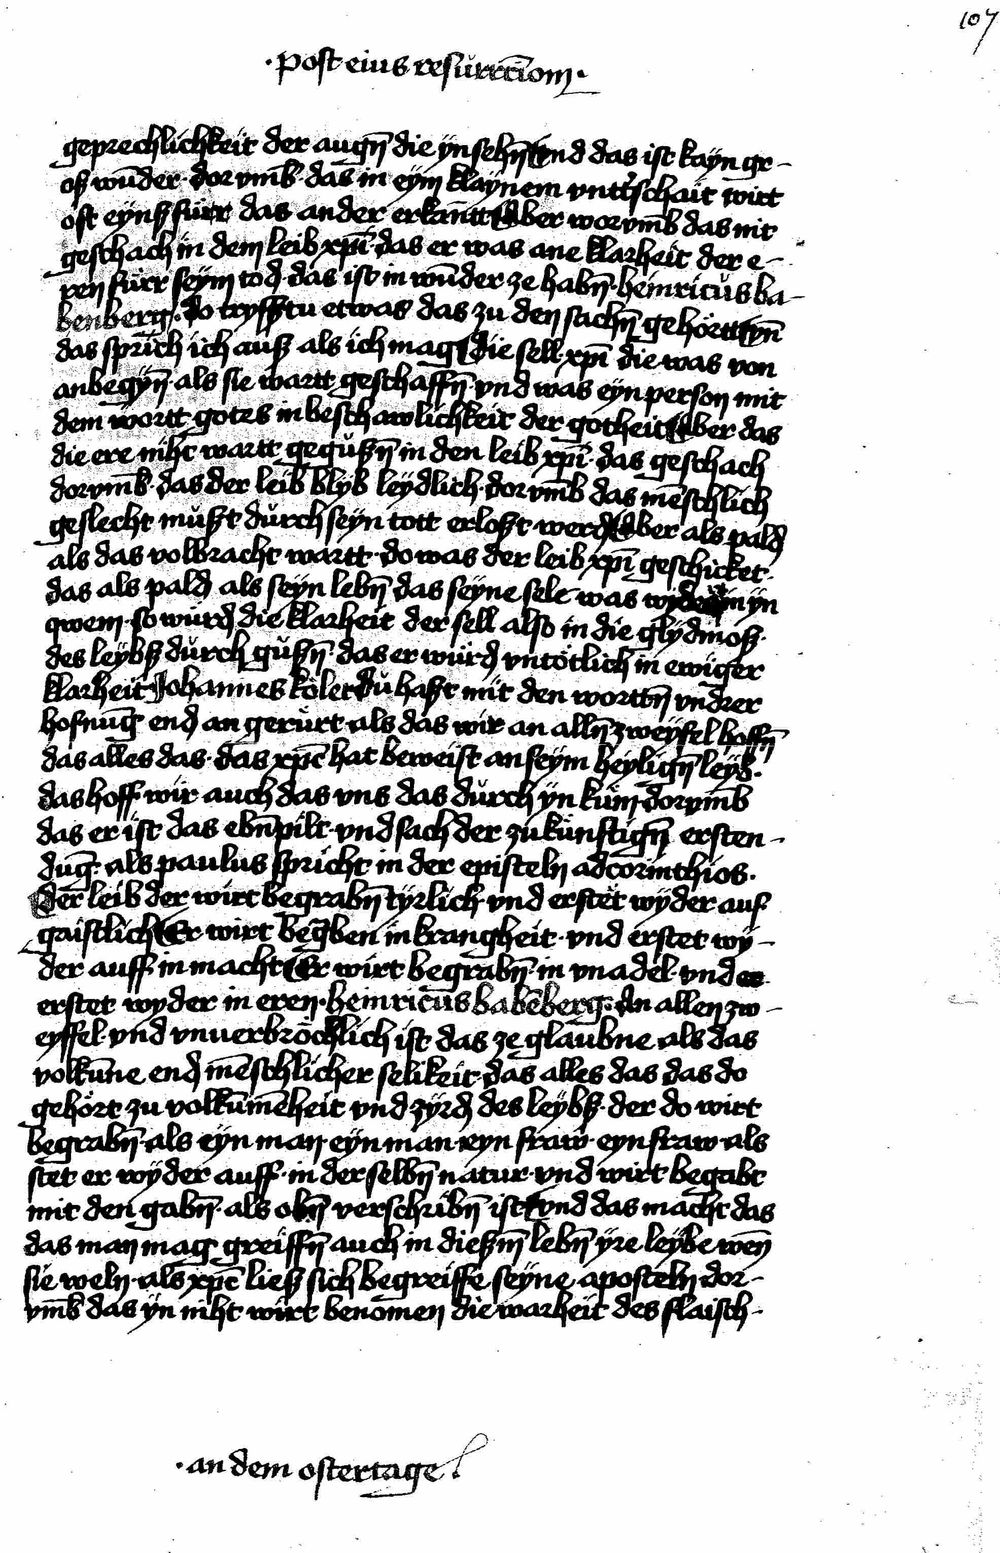 107
·Post eius resurrcc̄iom·
geprechlichkeit der augn̄ die ÿn sehn̄ Vnd das ist kaÿn gr-
oß wūder· dor vmb̄· das in eÿm klaÿnem vntt'schait wirt
oft eÿnß fürr das ander erkan̄tt Aber wor vmb̄ das nit
geschach in dem leib xp̄i· das er was ane klarheit der e-
ren fürr seÿm tod· das ist in wūder ze habn̄· heinricus ba-
benberg: do tryfftu etwas das zu den sachn̄ gehörtt
das sprich ich auß als ich mag Die sell xp̄i die was von
anbegÿn̄· als sie wartt geschaffn̄· vnd was eÿn person mit
dem wortt gotes in beschawlichkeit der gotheit Aber das
die ere niht wartt gegußn̄ in den leib xp̄i· das geschach
dorvmb̄· das der leib blÿb leÿdlich· dor vmb̄ das mēschlich
geslecht mußt durch seÿn tott erloßt werd̄ Aber als pald
als das volbracht wartt· do was der leib xp̄i geschicket·
das als pald als seÿn lebn̄ das seÿne sele was wÿder in ÿn
qwem· so würd die klarheit der sell also in die glÿdmoß·
des leÿbß durch gußn̄ das er würd vntötlich in ewiger
klarheit Johannes köler Du haßt mit den worttn̄ vndrer
hofnug̅ end an gerürt· als das wir an alln̄ zweÿfel hoffn̄
das alles das· das xp̄c hat beweist an seÿm heÿlign̄ leÿb·
das hoff wir auch das vns das durch ÿn kum̄· dorvmb̄
das er ist das ebn̄pilt· vnd sach der zukünftign̄ ersten-
dug̅· als paulus spricht in der episteln ad corinthios·
Der leib der wirt begrabn̄ tÿrlich· vnd erstet wÿder auf
gaistlich Er wirt begrben in krangheit· vnd erstet wÿ-
der auff· in macht Er wirt begrabn̄· in vnadel· vnd
erstet wyder in eren· heinricus babēberg: An allen zw-
eÿffel· vnd vnuerbröchlich ist· das ze glaubne als das
volkūne end mēschlicher selikeit· das alles das das do
gehört zu volkūmēheit vnd zÿrd des leÿbß· der do wirt
begrabn̄· als eÿn man eÿn man· eyn fraw· eyn fraw· als
stet er wÿder auff· in der selbn̄ natur· vnd wirt begabt
mit den gabn̄· als obn̄ verschribn̄ ist Vnd das macht das
das man mag greiffn̄ auch in dießm̄ lebn̄ ÿre leÿbe wen̄
sie weln· als xp̄c ließ sich begreiffe seÿne aposteln· dor-
vmb̄ das ÿn niht wirt benomen die warheit des flaisch-
·an dem ostertage